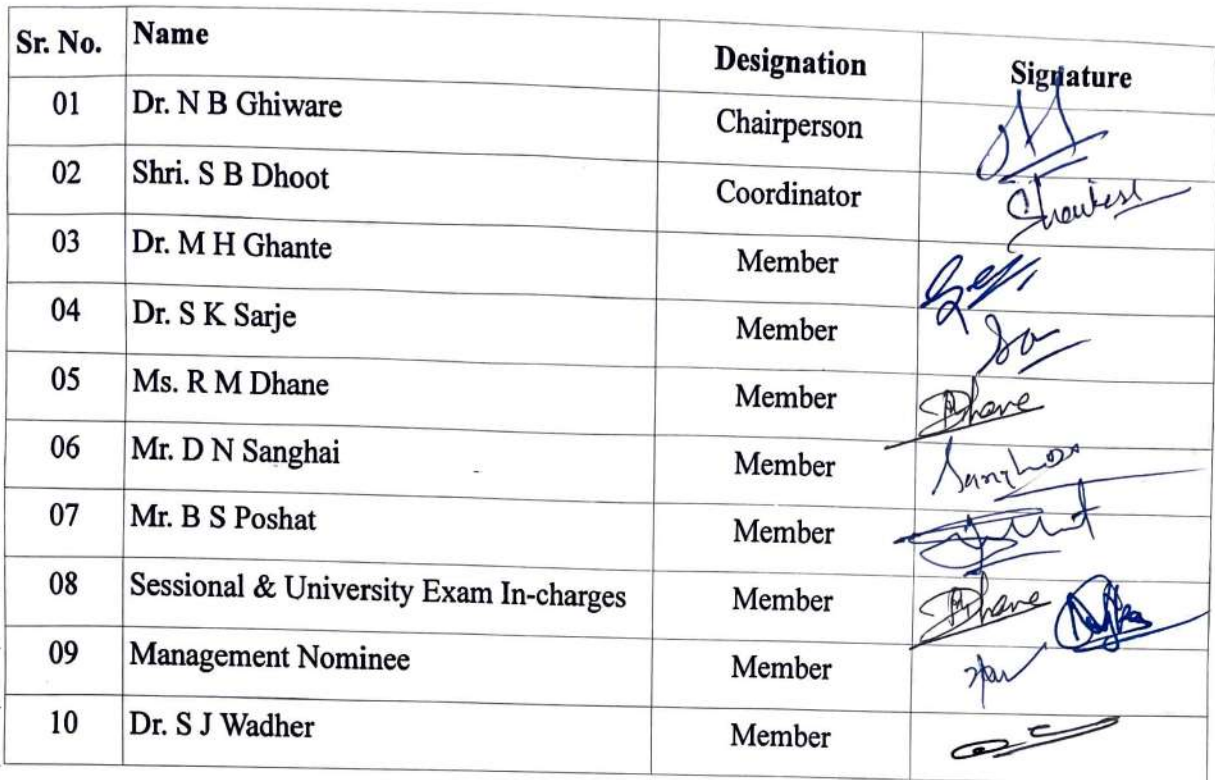 Sr. No. Name Designation Signature
01 Dr. N B Ghiware Chairperson
02 Shri. S B Dhoot Coordinator
03 Dr. M H Ghante Member
04 Dr. S K Sarje Member
05 Ms. R M Dhane Member Dhane
06 Mr. D N Sanghai Member
07 Mr. B S Poshat Member
08 Sessional & University Exam In-charges Member Dhane
09 Management Nominee Member
10 Dr. S J Wadher Member